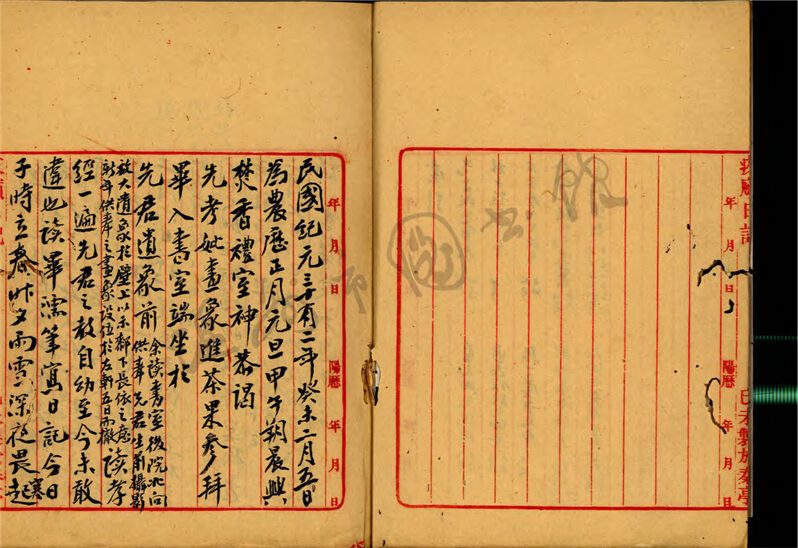 日記
年 月 日
陽歷 年 月 日
己未製於秦亭
年 月 日 陽歷 年 月 日
民國紀元三十有二年癸未二月五日
為農歷正月元旦甲午朔晨興
焚香禮室神恭謁
先考妣畫象進茶果參拜
畢入書室端坐於
先君遺象前
余讀書室後院北向
供奉先君生前攝影
放大遺象於壁上以示都下長依之意
新年供奉之畫象設位於左軒五日而撤
讀孝
經一遍先君之教自幼至今未敢
違也讀畢濡筆寫日記今日
子時立春昨夕雨雪深夜畏寒起